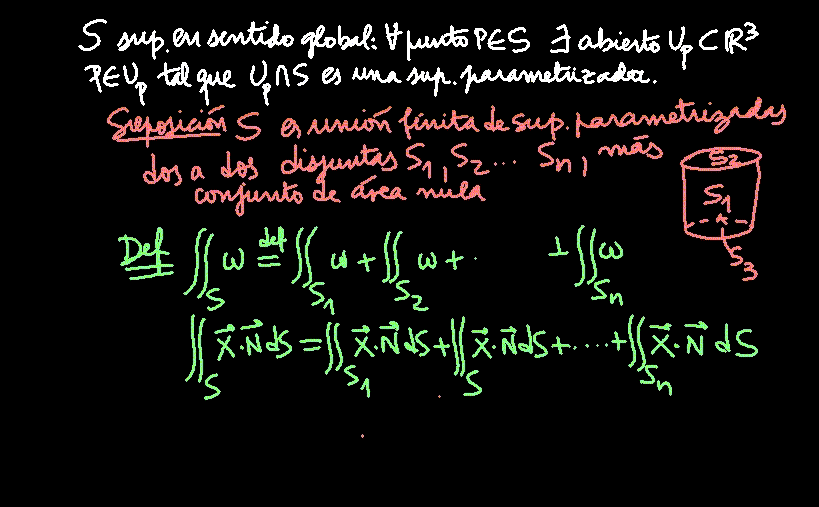 S sup. en sentido global: ∀ punto P∈S ∃ abierto U_p ⊂ ℝ³
P∈U_p tal que U_p∩S es una sup. parametrizada.
Suposición S es unión finita de sup. parametrizadas
dos a dos disjuntas S₁, S₂... Sₙ, más
conjunto de área nula
S₂
S₁
S₃
Def ∬_S ω =^def ∬_S₁ ω + ∬_S₂ ω + · + ∬_Sₙ ω
∬_S X⃗·N⃗ dS = ∬_S₁ X⃗·N⃗ dS + ∬_S X⃗·N⃗ dS + ···· + ∬_Sₙ X⃗·N⃗ dS